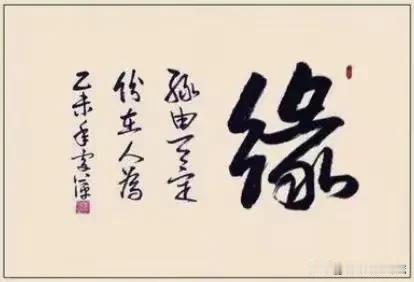 缘
缘由天定
份在人为
乙未年